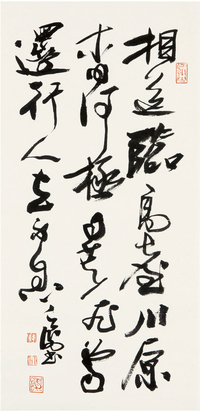 相送臨高台川原
杳何極日暮飛鳥
還行人去不息